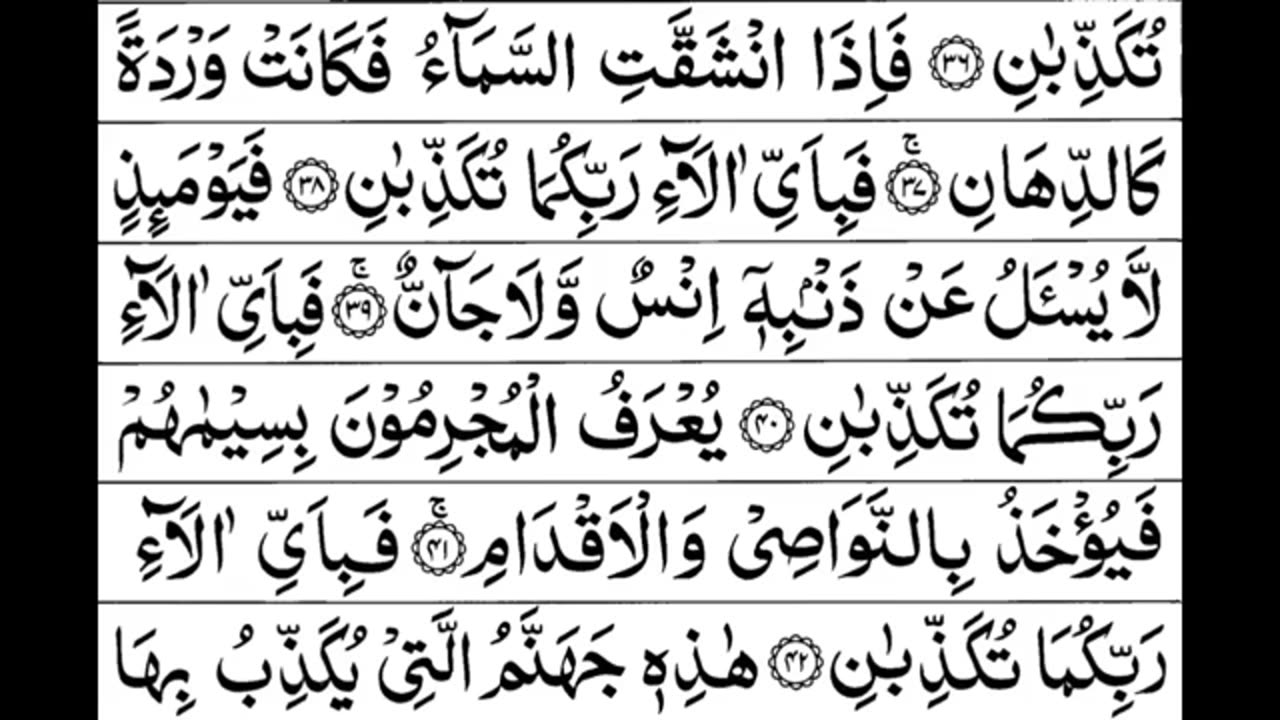 تُكَذِّبٰنِ ﴿۳۶﴾ فَاِذَا انْشَقَّتِ السَّمَآءُ فَكَانَتْ وَرْدَةً
كَالدِّهَانِ ﴿۳۷﴾ۚ فَبِاَيِّ اٰلَآءِ رَبِّكُمَا تُكَذِّبٰنِ ﴿۳۸﴾ فَيَوْمَىِٕذٍ
لَّا يُسْـَٔلُ عَنْ ذَنْۢبِهٖۤ اِنْسٌ وَّلَا جَآنٌّ ﴿۳۹﴾ۚ فَبِاَيِّ اٰلَآءِ
رَبِّكُمَا تُكَذِّبٰنِ ﴿۴۰﴾ يُعْرَفُ الْمُجْرِمُوْنَ بِسِيْمٰهُمْ
فَيُؤْخَذُ بِالنَّوَاصِيْ وَالْاَقْدَامِ ﴿۴۱﴾ۚ فَبِاَيِّ اٰلَآءِ
رَبِّكُمَا تُكَذِّبٰنِ ﴿۴۲﴾ هٰذِهٖ جَهَنَّمُ الَّتِيْ يُكَذِّبُ بِهَا